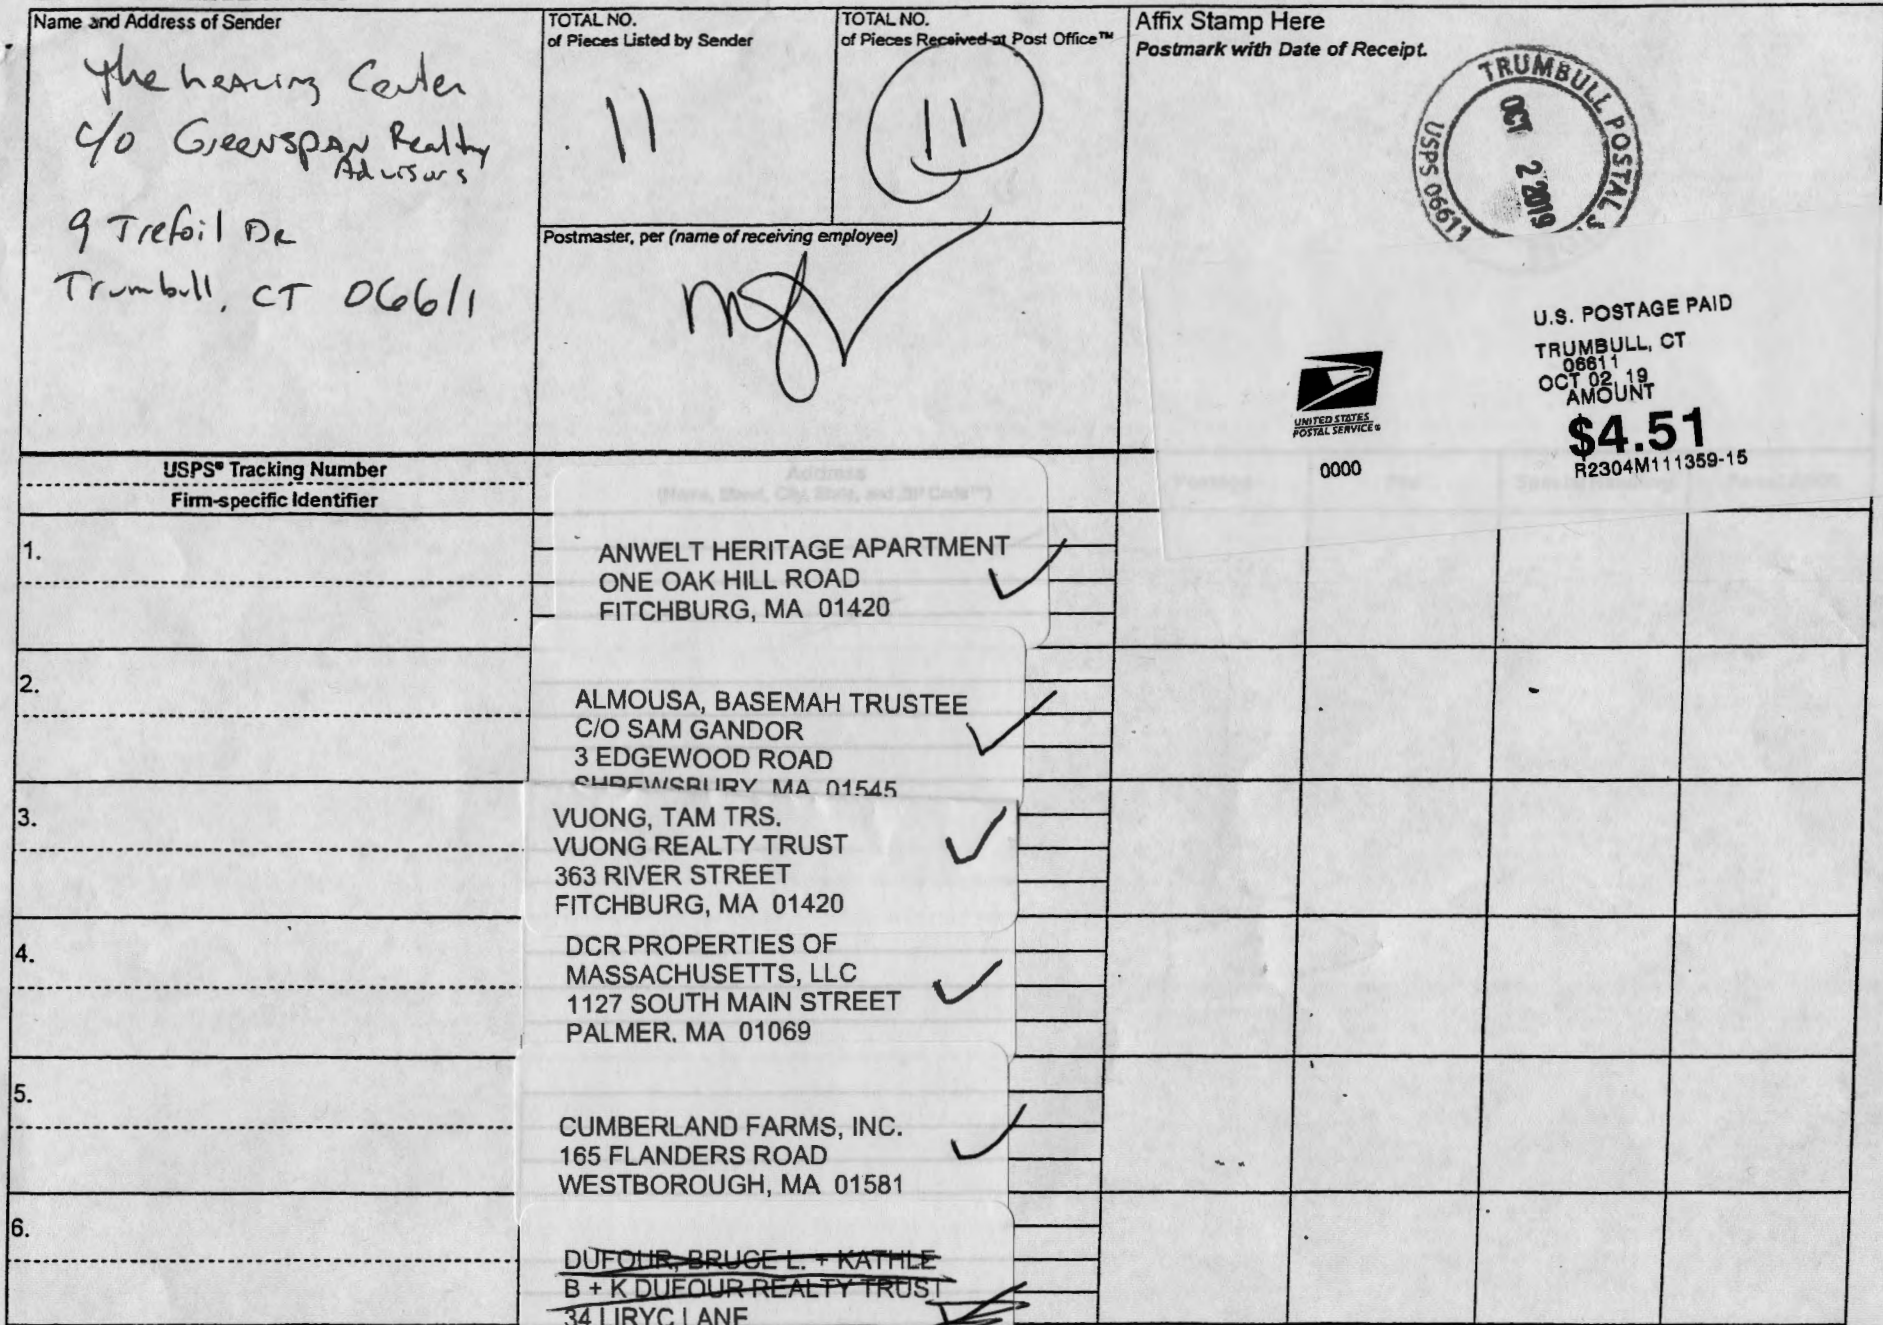 Name and Address of Sender
The Hearing Center
c/o Greenspan Realty
Advisors
9 Trefoil Dr
Trumbull, CT 06611
TOTAL NO.
of Pieces Listed by Sender
11
TOTAL NO.
of Pieces Received at Post Office™
11
Postmaster, per (name of receiving employee)
Affix Stamp Here
Postmark with Date of Receipt.
TRUMBULL POSTAL
OCT 2 2019
USPS 06611
U.S. POSTAGE PAID
TRUMBULL, CT
06611
OCT 02, 19
AMOUNT
$4.51
R2304M111359-15
UNITED STATES
POSTAL SERVICE®
0000
USPS® Tracking Number
Firm-specific Identifier
Address
(Name, Street, City, State, and ZIP Code™)
Postage
Fee
Special Handling
Parcel Airlift
1.
ANWELT HERITAGE APARTMENT
ONE OAK HILL ROAD
FITCHBURG, MA 01420
2.
ALMOUSA, BASEMAH TRUSTEE
C/O SAM GANDOR
3 EDGEWOOD ROAD
SHREWSBURY, MA 01545
3.
VUONG, TAM TRS.
VUONG REALTY TRUST
363 RIVER STREET
FITCHBURG, MA 01420
4.
DCR PROPERTIES OF
MASSACHUSETTS, LLC
1127 SOUTH MAIN STREET
PALMER, MA 01069
5.
CUMBERLAND FARMS, INC.
165 FLANDERS ROAD
WESTBOROUGH, MA 01581
6.
DUFOUR, BRUCE L. + KATHLE
B + K DUFOUR REALTY TRUST
34 LIRYC LANE